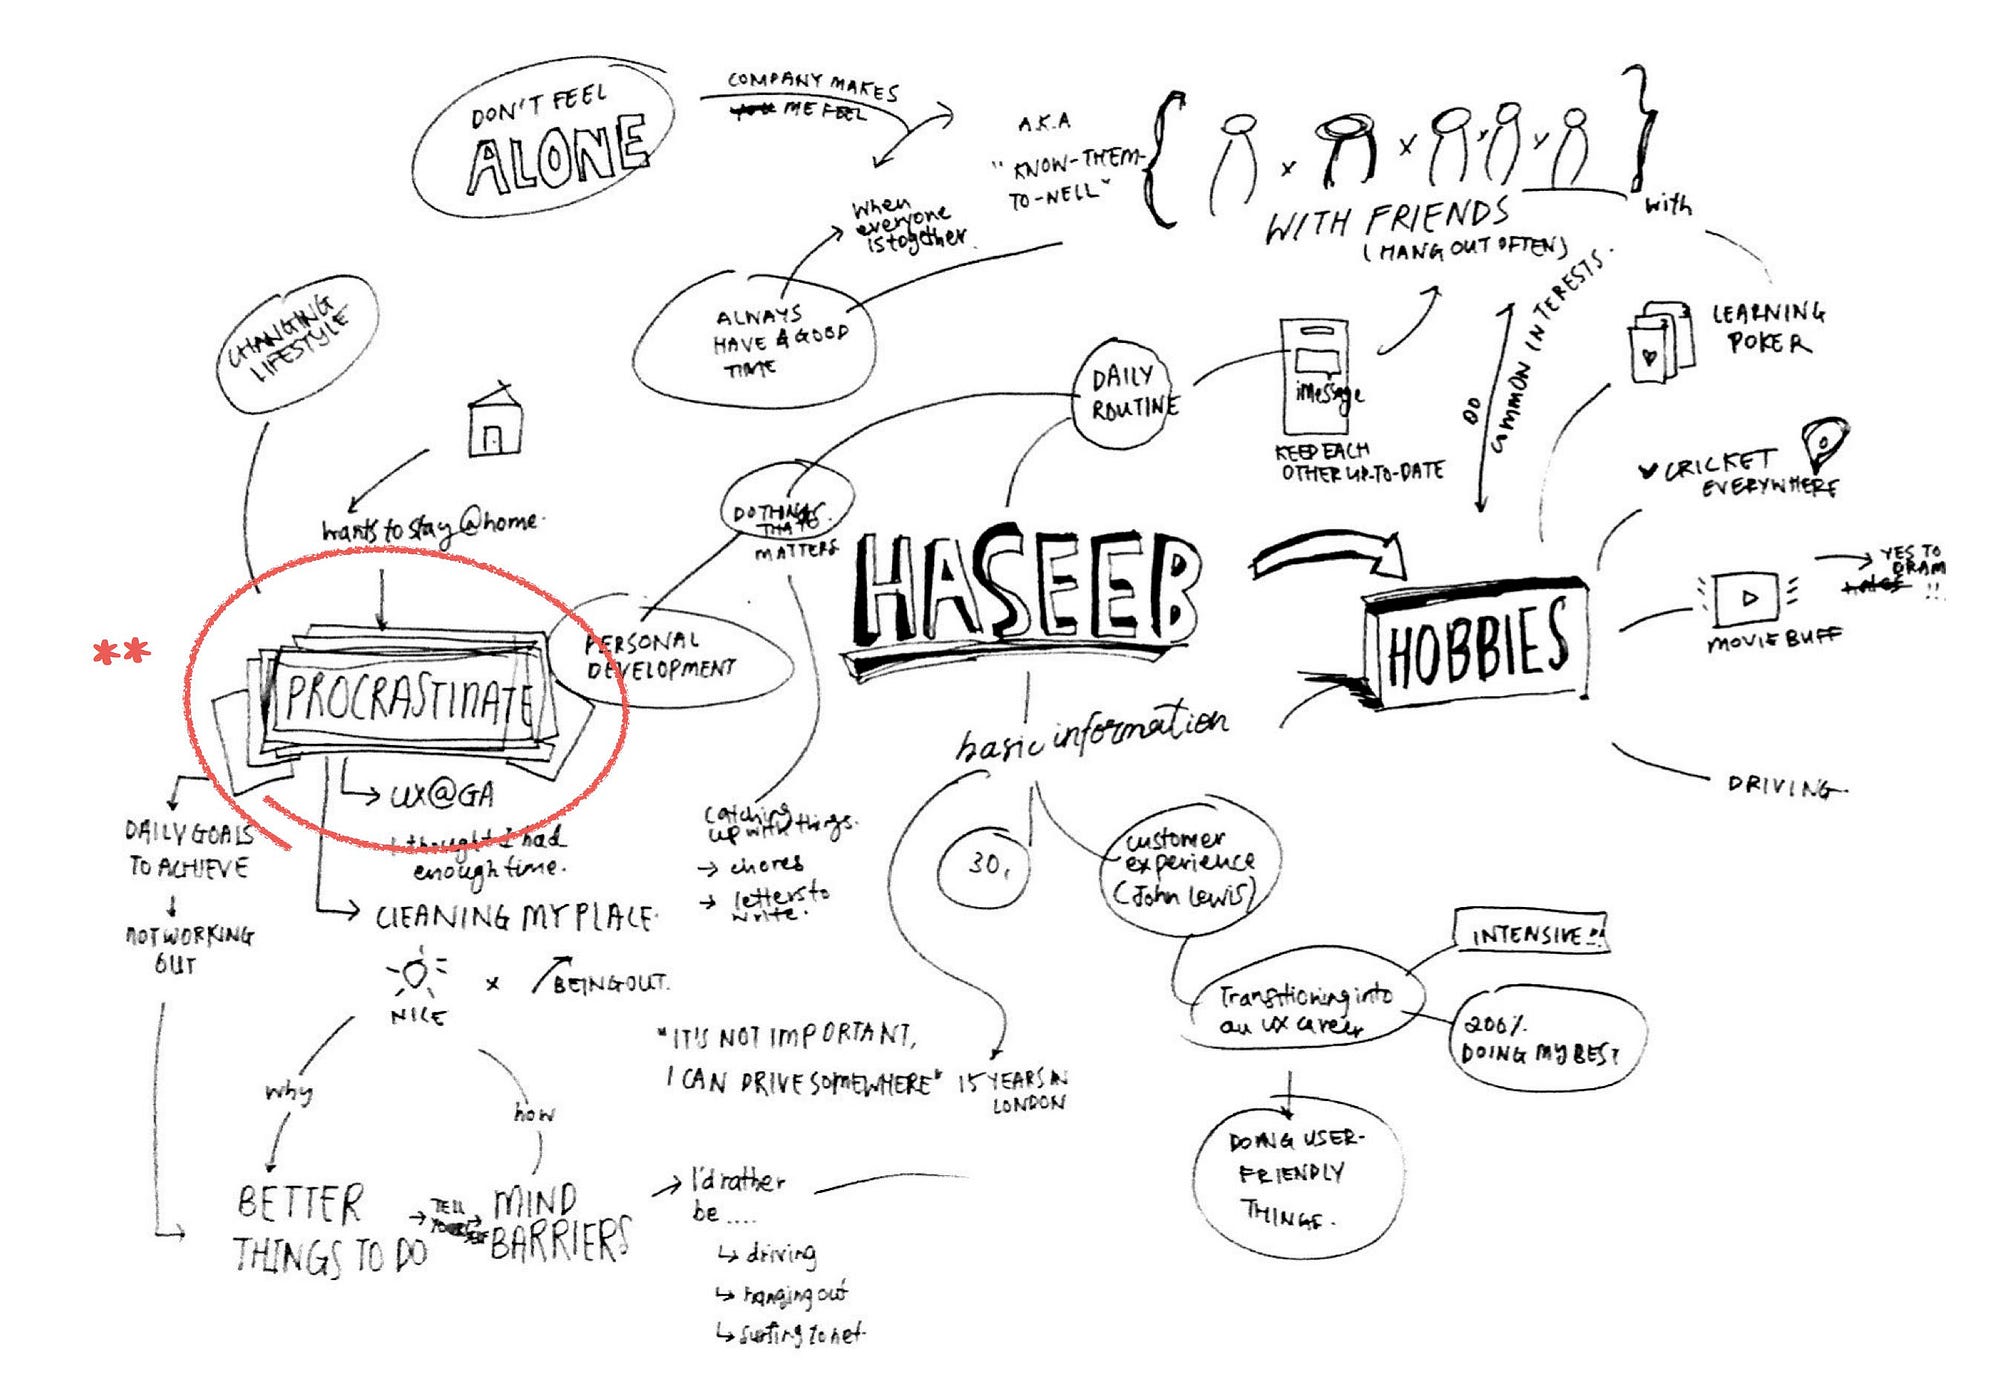 DON'T FEEL
ALONE
COMPANY MAKES
ME FEEL
A.K.A
"KNOW-THEM-
TO-NELL"
WITH FRIENDS
(HANG OUT OFTEN)
with
When
everyone
is together.
ALWAYS
HAVE A GOOD
TIME
CHANGING
LIFESTYLE
DAILY
ROUTINE
iMessage
KEEP EACH
OTHER UP-TO-DATE
DO
COMMON INTERESTS.
LEARNING
POKER
CRICKET
EVERYWHERE
YES TO
DRAM
!!
MOVIE BUFF
DRIVING
wants to stay @home.
DO THINGS
THAT
MATTERS
HASEEB
HOBBIES
**
PROCRASTINATE
PERSONAL
DEVELOPMENT
basic information
UX@GA
I thought I had
enough time.
DAILY GOALS
TO ACHIEVE
NOT WORKING
OUT
CLEANING MY PLACE.
NICE
x
BEING OUT.
catching
up with things.
→ chores
→ letters to
write.
30,
customer
experience
(John Lewis)
Transitioning into
an UX career
INTENSIVE!!
200%
DOING MY BEST
DOING USER-
FRIENDLY
THINGS.
"IT'S NOT IMPORTANT,
I CAN DRIVE SOMEWHERE"
15 YEARS IN
LONDON
why
how
BETTER
THINGS TO DO
TELL
MIND
BARRIERS
I'd rather
be ....
↳ driving
↳ hanging out
↳ surfing